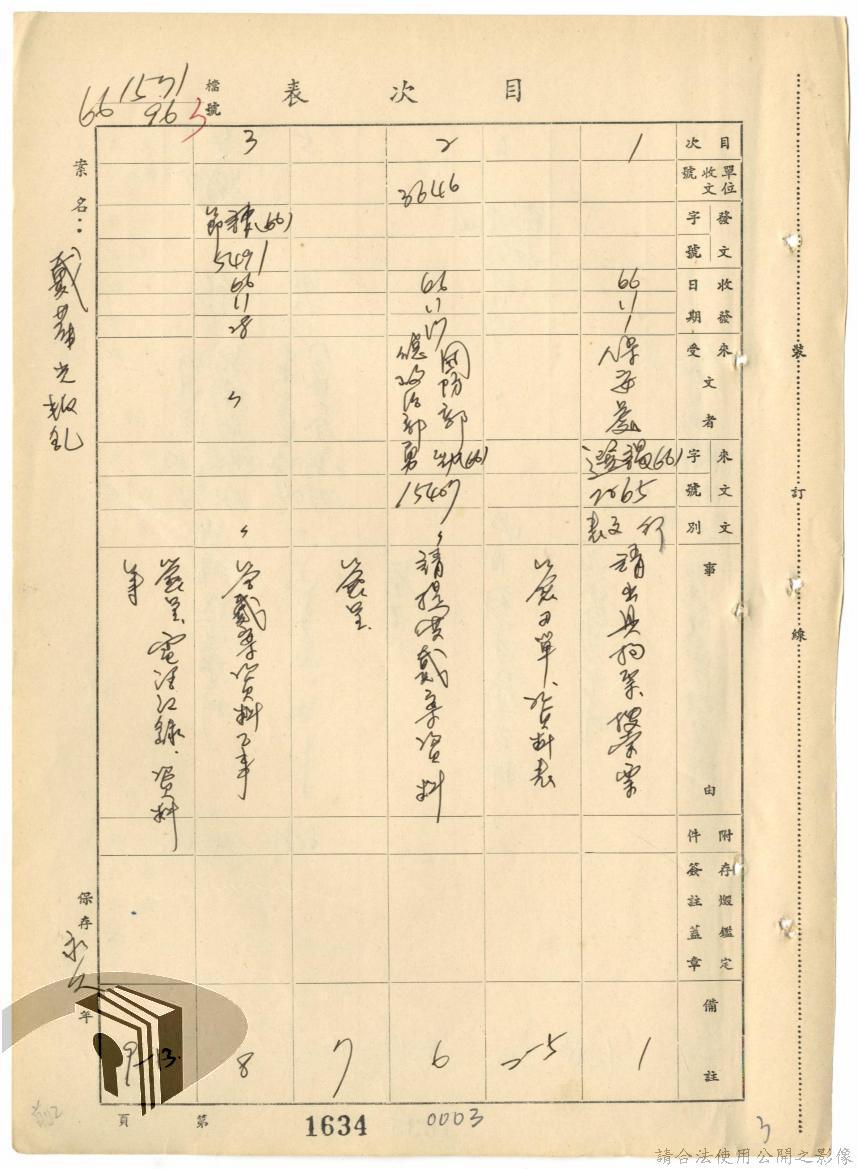 目次表
檔號
1571
66 96 3
案名：戴華光叛亂
目次
單位收文號
發文字號
收發日期
來文者
受
來文字號
文別
事由
附件
存燬鑑定簽註蓋章
備註
1
66
11
1
保安處
(66)
2065
請出具拘票、搜索票
1
名單、資料表
2-5
2
3646
66
11
17
國防部
總政治部
(66)
15407
請提供戴案資料
6
簽呈
7
3
(66)
5491
66
11
28
戴案資料乙事
8
簽呈、電話紀錄、資料
9-13
保存永久年
第
頁
1634
0003
3
裝訂線
請合法使用公開之影像